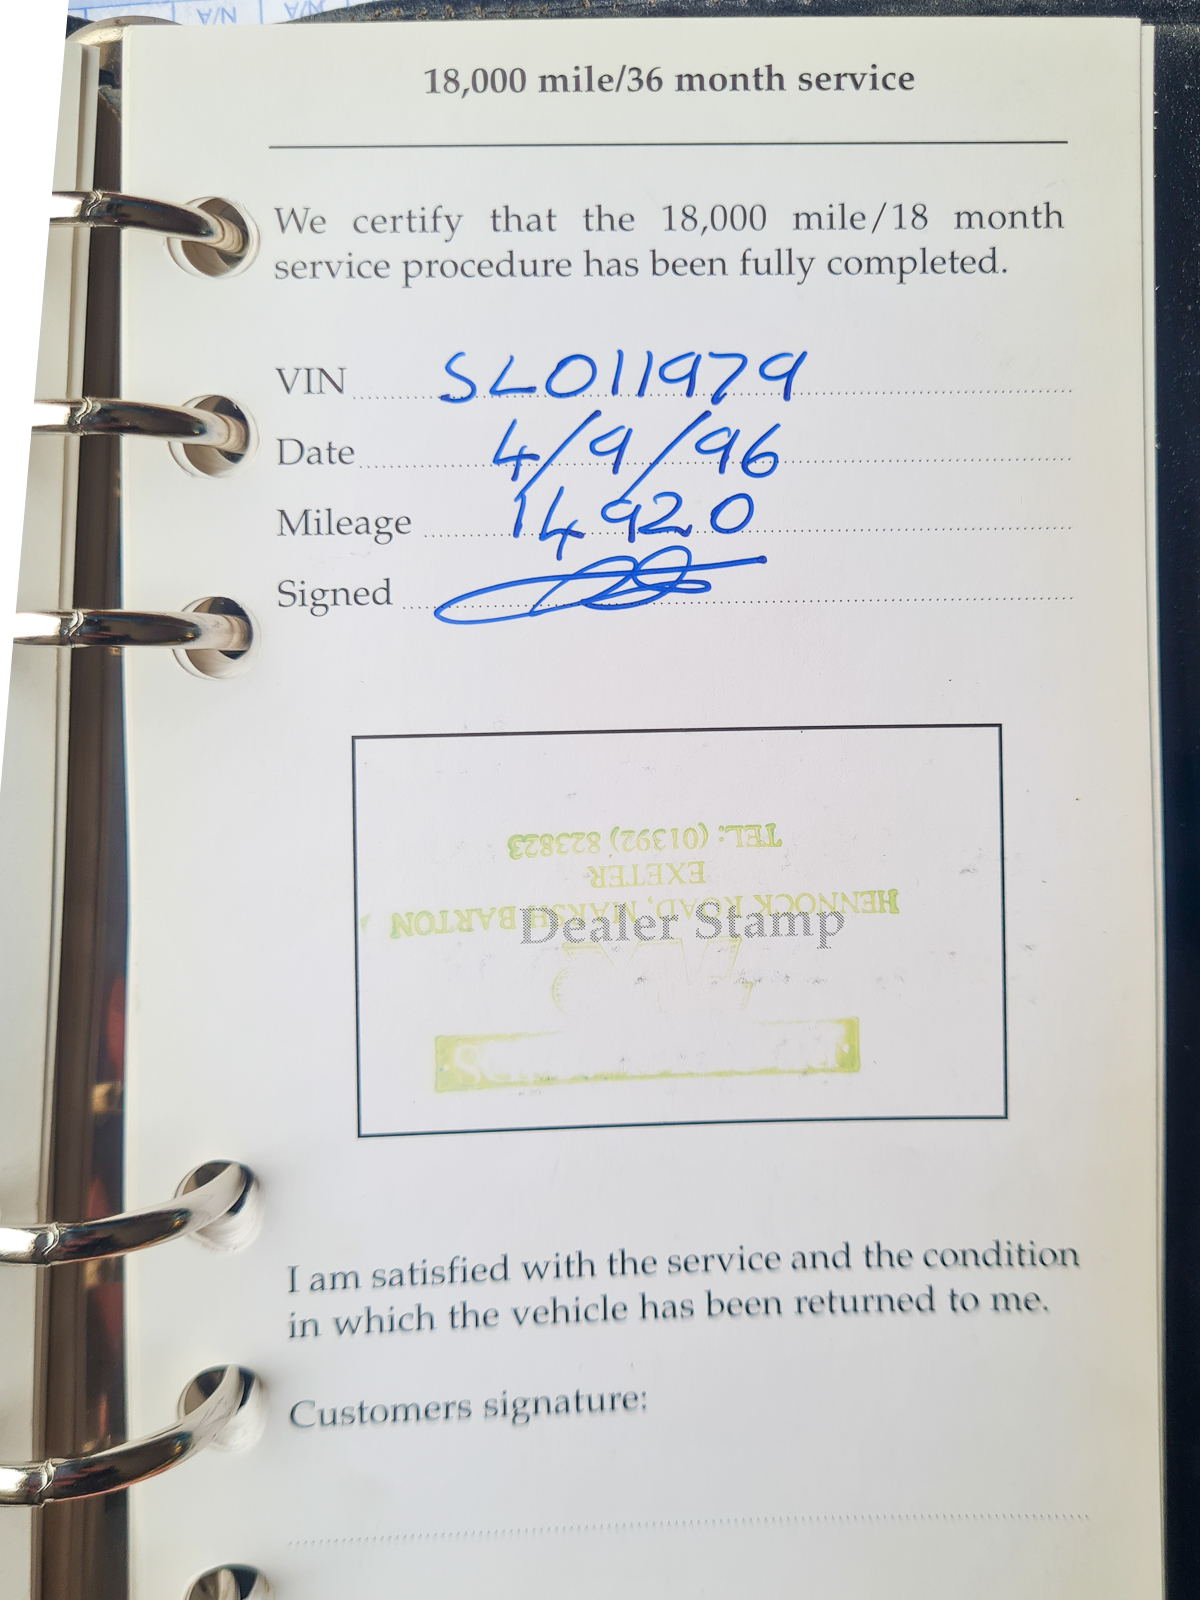 N/A N/A
18,000 mile/36 month service
We certify that the 18,000 mile/18 month
service procedure has been fully completed.
VIN SL011979
Date 4/9/96
Mileage 14920
Signed
Dealer Stamp
HENNOCK ROAD, MARSH BARTON
EXETER
TEL: (01392) 823823
I am satisfied with the service and the condition
in which the vehicle has been returned to me.
Customers signature: